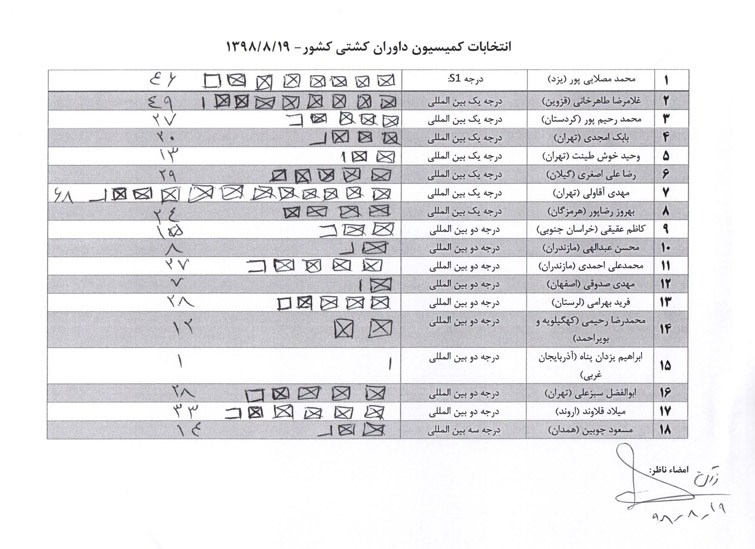 انتخابات کمیسیون داوران کشتی کشور - ۱۳۹۸/۸/۱۹
۱ محمد مصلایی پور (یزد) درجه S1 ۴۶
۲ غلامرضا طاهرخانی (قزوین) درجه یک بین المللی ۴۹
۳ محمد رحیم پور (کردستان) درجه یک بین المللی ۲۷
۴ بابک امجدی (تهران) درجه یک بین المللی ۲۰
۵ وحید خوش طینت (تهران) درجه یک بین المللی ۱۳
۶ رضا علی اصغری (گیلان) درجه یک بین المللی ۲۹
۷ مهدی آقاولی (تهران) درجه یک بین المللی ۶۸
۸ بهروز رضاپور (هرمزگان) درجه یک بین المللی ۲۴
۹ کاظم عقیقی (خراسان جنوبی) درجه دو بین المللی
۱۰ محسن عبدالهی (مازندران) درجه دو بین المللی ۸
۱۱ محمدعلی احمدی (مازندران) درجه دو بین المللی ۲۷
۱۲ مهدی صدوقی (اصفهان) درجه دو بین المللی ۷
۱۳ فرید بهرامی (لرستان) درجه دو بین المللی ۲۸
۱۴ محمدرضا رحیمی (کهگیلویه و درجه دو بین المللی ۱۲
بویراحمد)
۱۵ ابراهیم یزدان پناه (آذربایجان درجه دو بین المللی ۱
غربی)
۱۶ ابوالفضل سبزعلی (تهران) درجه دو بین المللی ۲۸
۱۷ میلاد قلاوند (اروند) درجه دو بین المللی ۳۳
۱۸ مسعود چوبین (همدان) درجه سه بین المللی ۱۴
امضاء ناظر:
۹۸-۸-۱۹